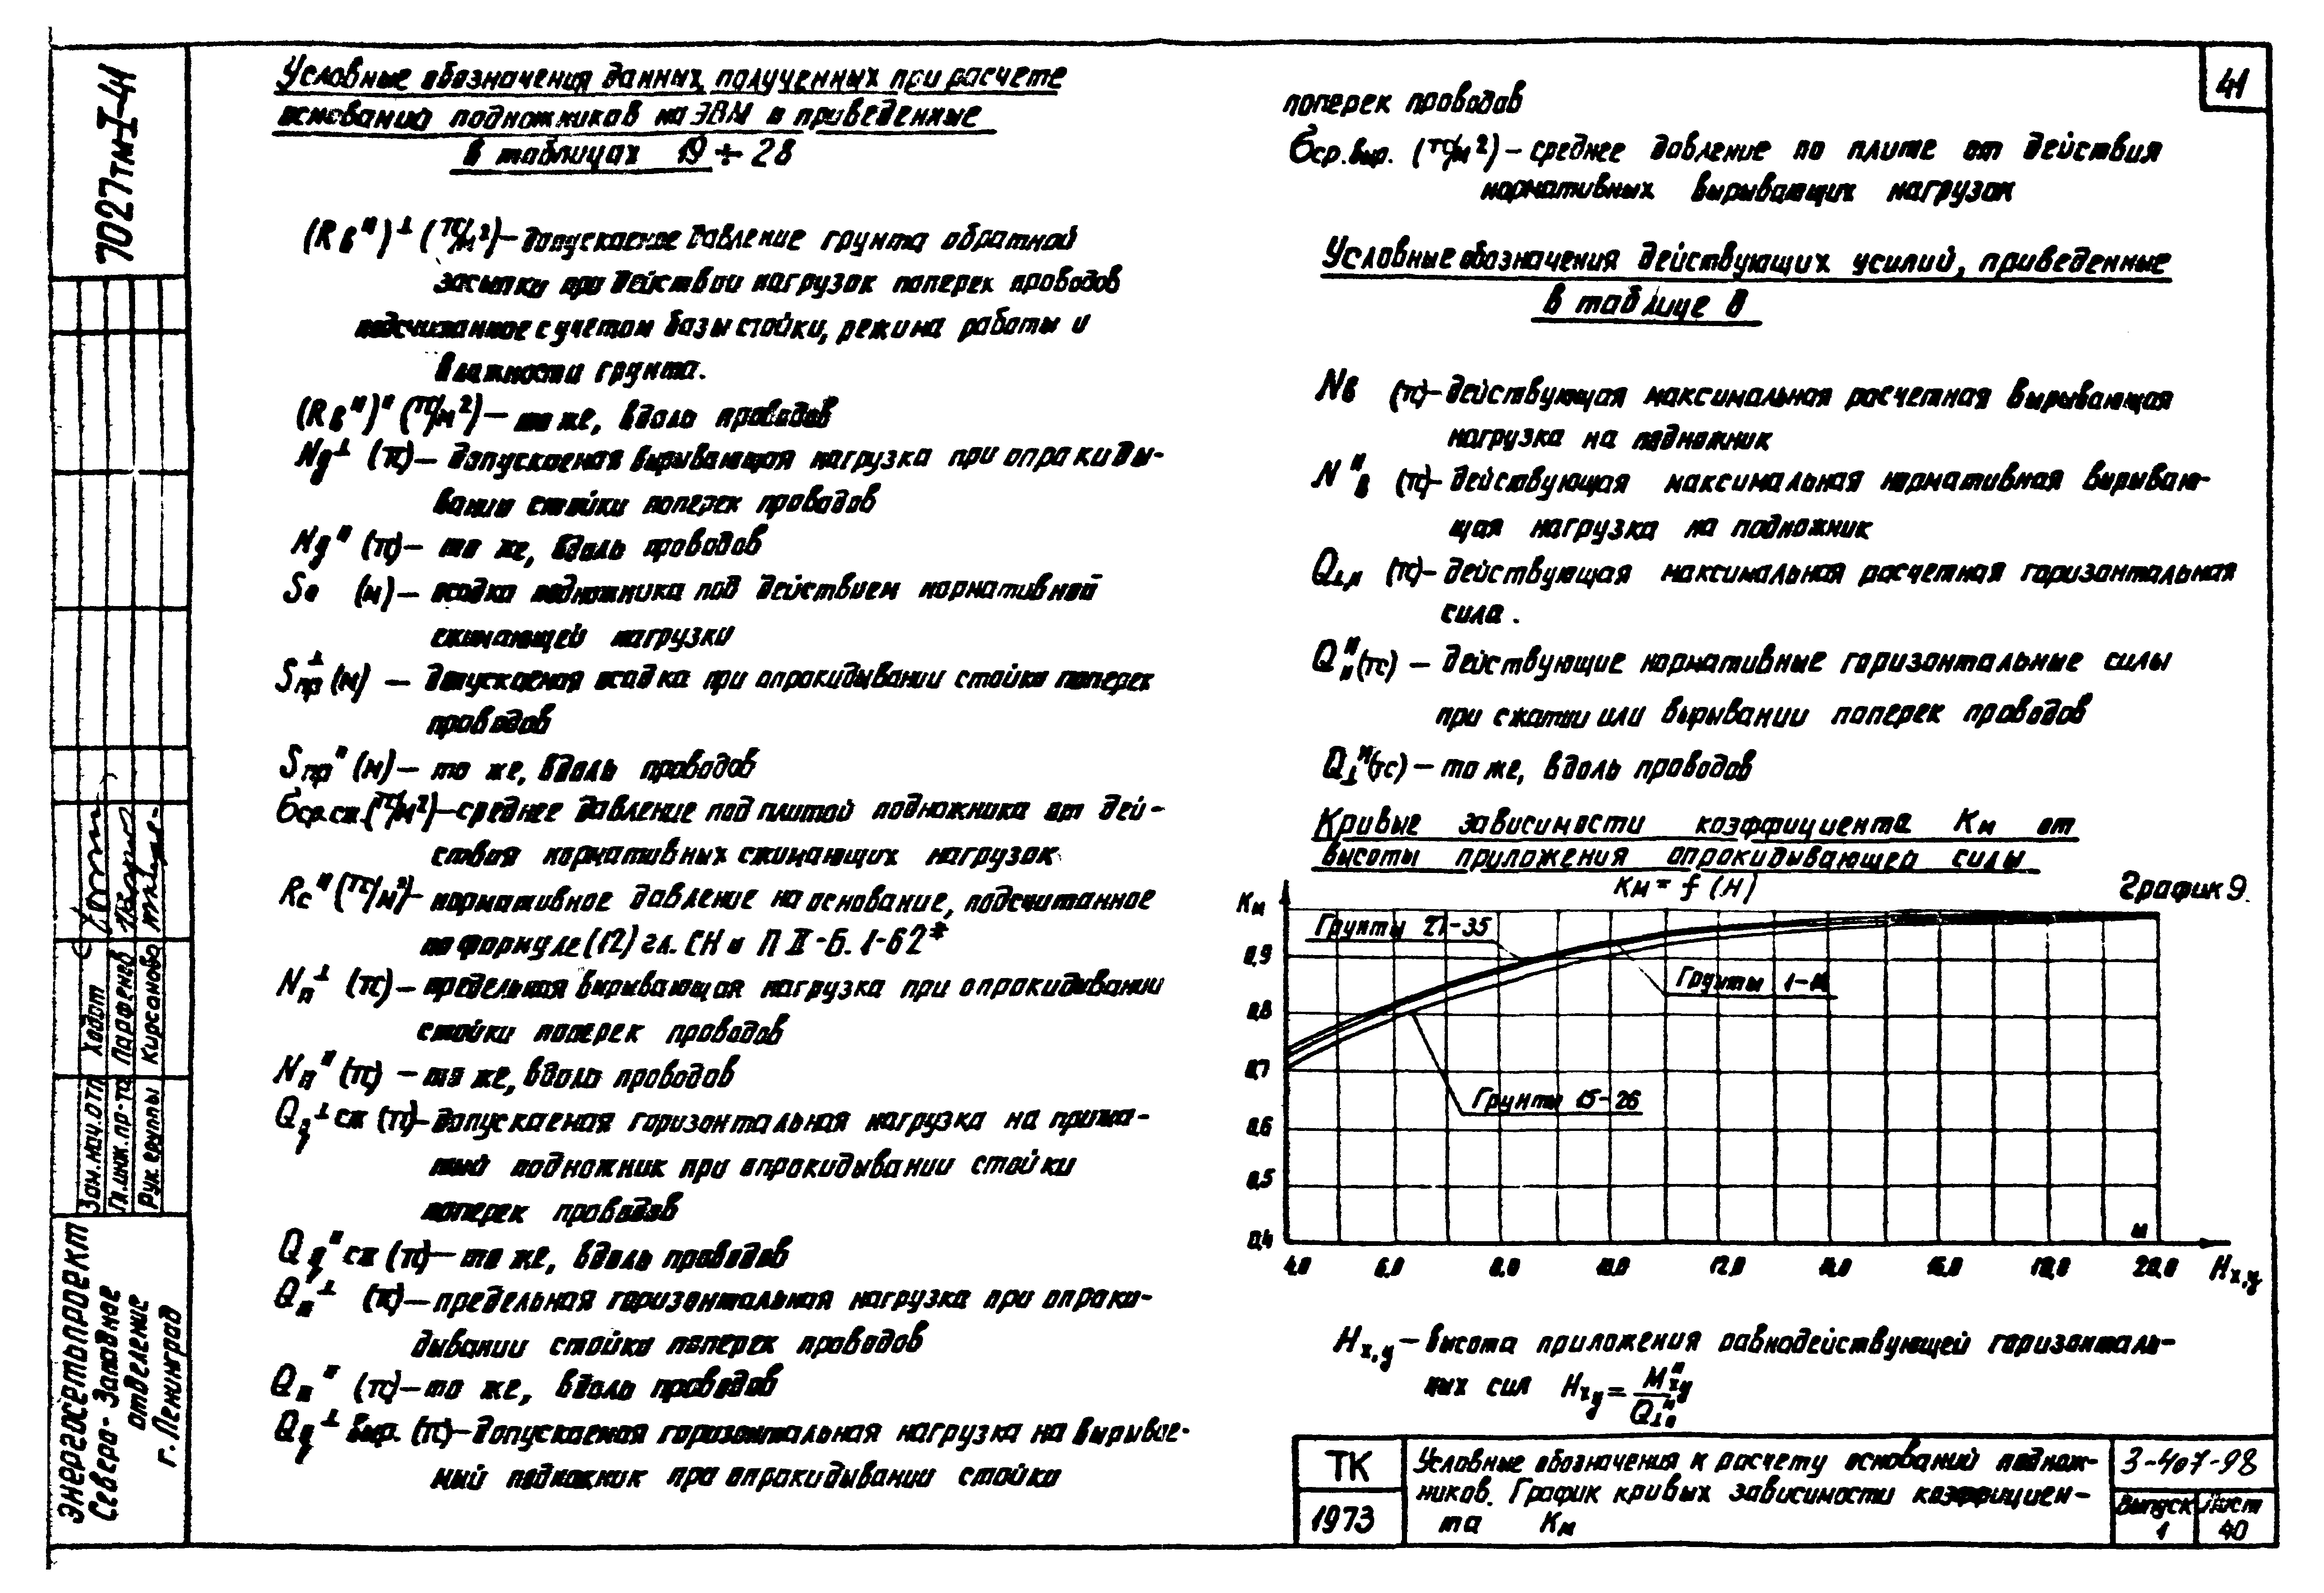 7027тм-I-41
41
Условные обозначения данных, полученных при расчете
оснований подножников на ЭВМ и приведенные
в таблицах 19÷28
(Rв")⊥ (тс/м²) – допускаемое давление грунта обратной
засыпки при действии нагрузок поперек проводов
подсчитанное с учетом базы стойки, режима работы и
влажности грунта.
(Rв")" (тс/м²) – то же, вдоль проводов
Ng⊥ (тс) – допускаемая вырывающая нагрузка при опрокиды-
вании стойки поперек проводов
Ng" (тс) – то же, вдоль проводов
Sо (м) – осадка подножника под действием нормативной
сжимающей нагрузки
Sпр⊥ (м) – допускаемая осадка при опрокидывании стойки поперек
проводов
Sпр" (м) – то же, вдоль проводов
бср.сж. (тс/м²) – среднее давление под плитой подножника от дей-
ствия нормативных сжимающих нагрузок
Rс" (тс/м²) – нормативное давление на основание, подсчитанное
по формуле (12) гл. СН и П II-Б. 1-62*
Nп⊥ (тс) – предельная вырывающая нагрузка при опрокидывании
стойки поперек проводов
Nп" (тс) – то же, вдоль проводов
Qg⊥ сж (тс) – допускаемая горизонтальная нагрузка на прижа-
тый подножник при опрокидывании стойки
поперек проводов
Qg" сж (тс) – то же, вдоль проводов
Qп⊥ (тс) – предельная горизонтальная нагрузка при опроки-
дывании стойки поперек проводов
Qп" (тс) – то же, вдоль проводов
Qg⊥ выр. (тс) – допускаемая горизонтальная нагрузка на вырывае-
мый подножник при опрокидывании стойки
поперек проводов
бср.выр. (тс/м²) – среднее давление по плите от действия
нормативных вырывающих нагрузок
Условные обозначения действующих усилий, приведенные
в таблице 8
Nв (тс) – действующая максимальная расчетная вырывающая
нагрузка на подножник
Nнв (тс) – действующая максимальная нормативная вырываю-
щая нагрузка на подножник
Q⊥,п (тс) – действующая максимальная расчетная горизонтальная
сила.
Qн" (тс) – действующие нормативные горизонтальные силы
при сжатии или вырывании поперек проводов
Q⊥н (тс) – то же, вдоль проводов
Кривые зависимости коэффициента Км от
высоты приложения опрокидывающей силы
Км = f (Н)
График 9.
Км
Грунты 27-35
Грунты 1-14
Грунты 15-26
0,9
0,8
0,7
0,6
0,5
0,4
4,0 6,0 8,0 10,0 12,0 14,0 16,0 18,0 20,0 Нх,у
м
Нх,у – высота приложения равнодействующей горизонталь-
ных сил Нху = Мнху / Q⊥н"
ТК
1973
Условные обозначения к расчету оснований поднож-
ников. График кривых зависимости коэффициен-
та Км
3-407-98
Выпуск 1
Лист 40
Зам. нач. отп Хадот
Гл. инж. пр-та Парфенев
Рук. группы Кирсанова
Энергосетьпроект
Северо-Западное
отделение
г. Ленинград